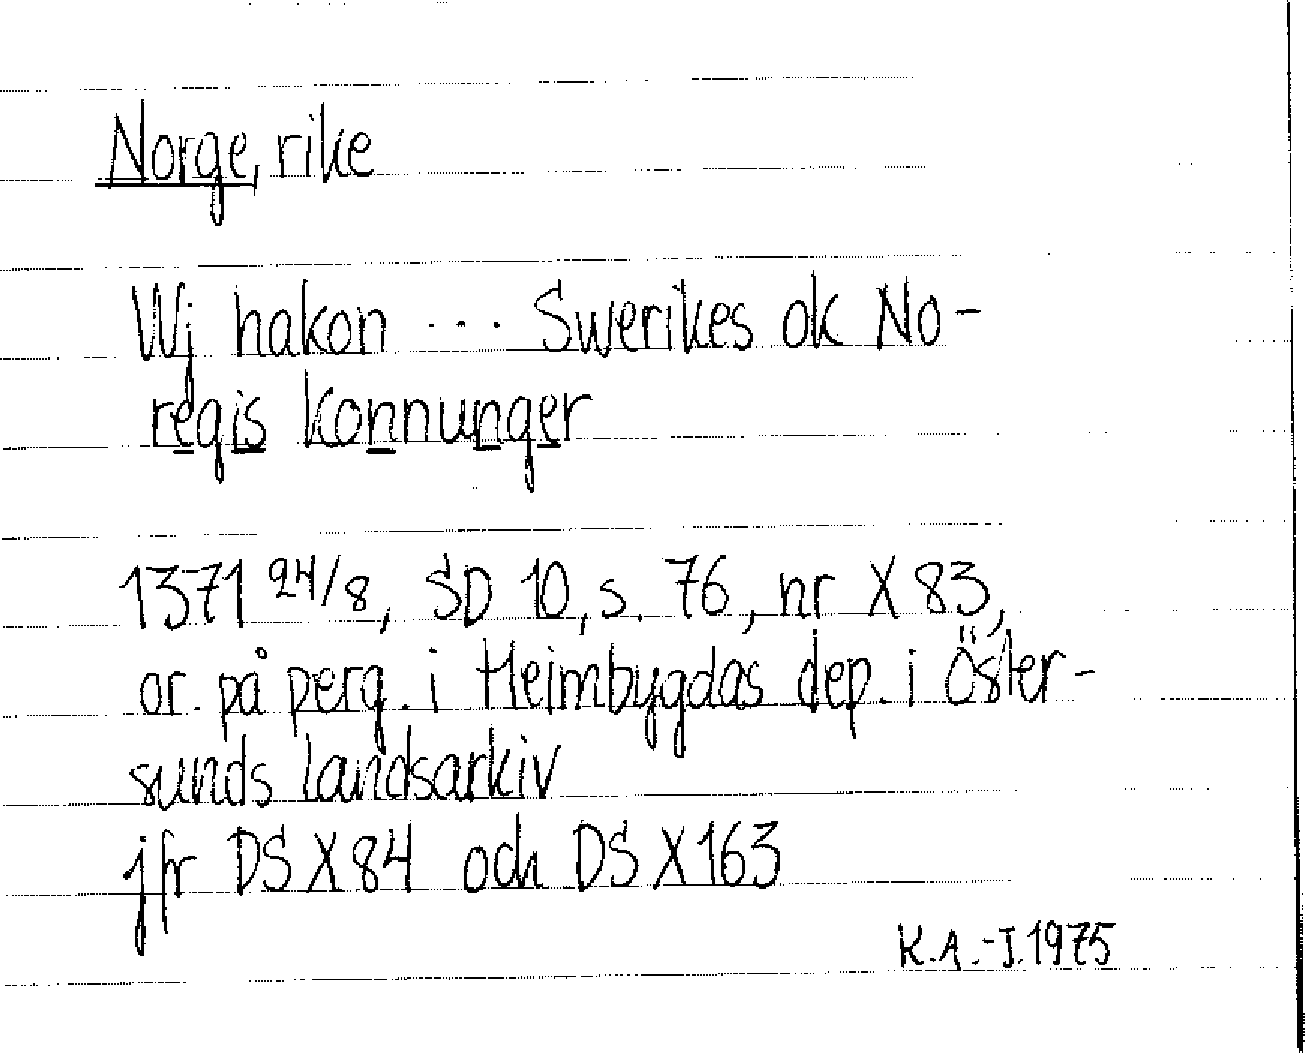 Norge, rike
Wj hakon ... Swerikes ok No-
regis konnunger
1371 24/8, SD 10, s. 76, nr X 83,
or. på perg. i Heimbygdas dep. i Öster-
sunds landsarkiv
jfr DS X 84 och DS X 163
K.A.-J. 1975